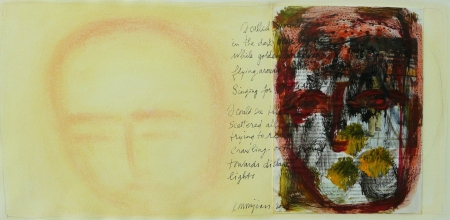 I called
in the dark
while golde
flying around
Singing for
I could see
Scattered a
trying to re
Crawling
towards dista
lights